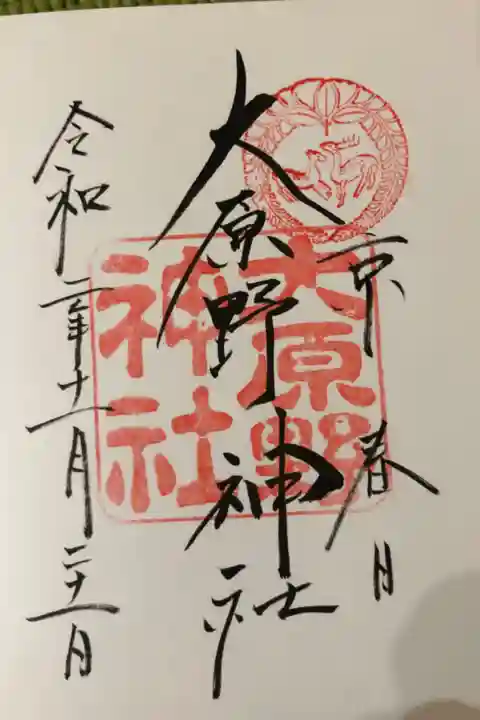 京春日
大原野神社
大原野
神社
令和二年十一月二十一日